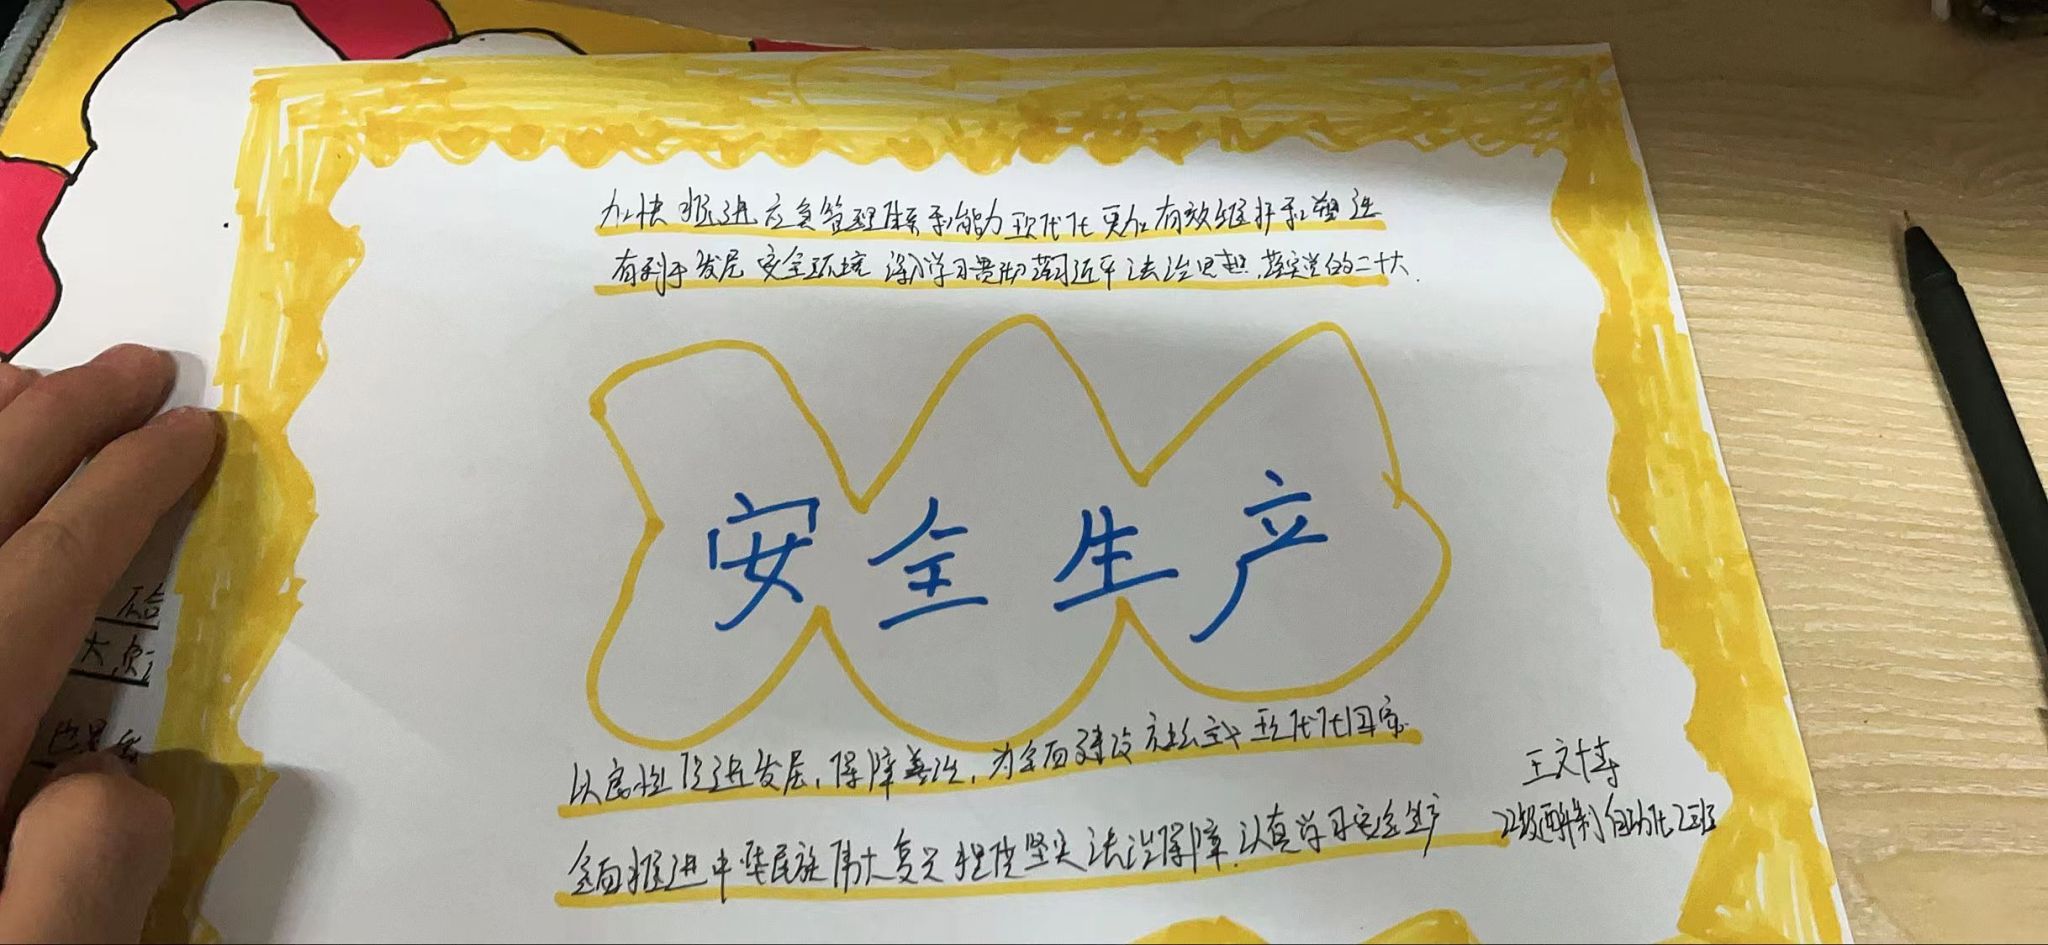 加快推进应急管理体系和能力现代化更加有效维护和塑造
有利于发展安全环境 深入学习贯彻落习近平法治思想,落实党的二十大.
安全生产
以良性促进发展,保障善治,为全面建设社会主义现代化国家.
全面推进中华民族伟大复兴提供坚实法治保障.认真学习安全生产
王文博
级 制自动化2班
大
也是